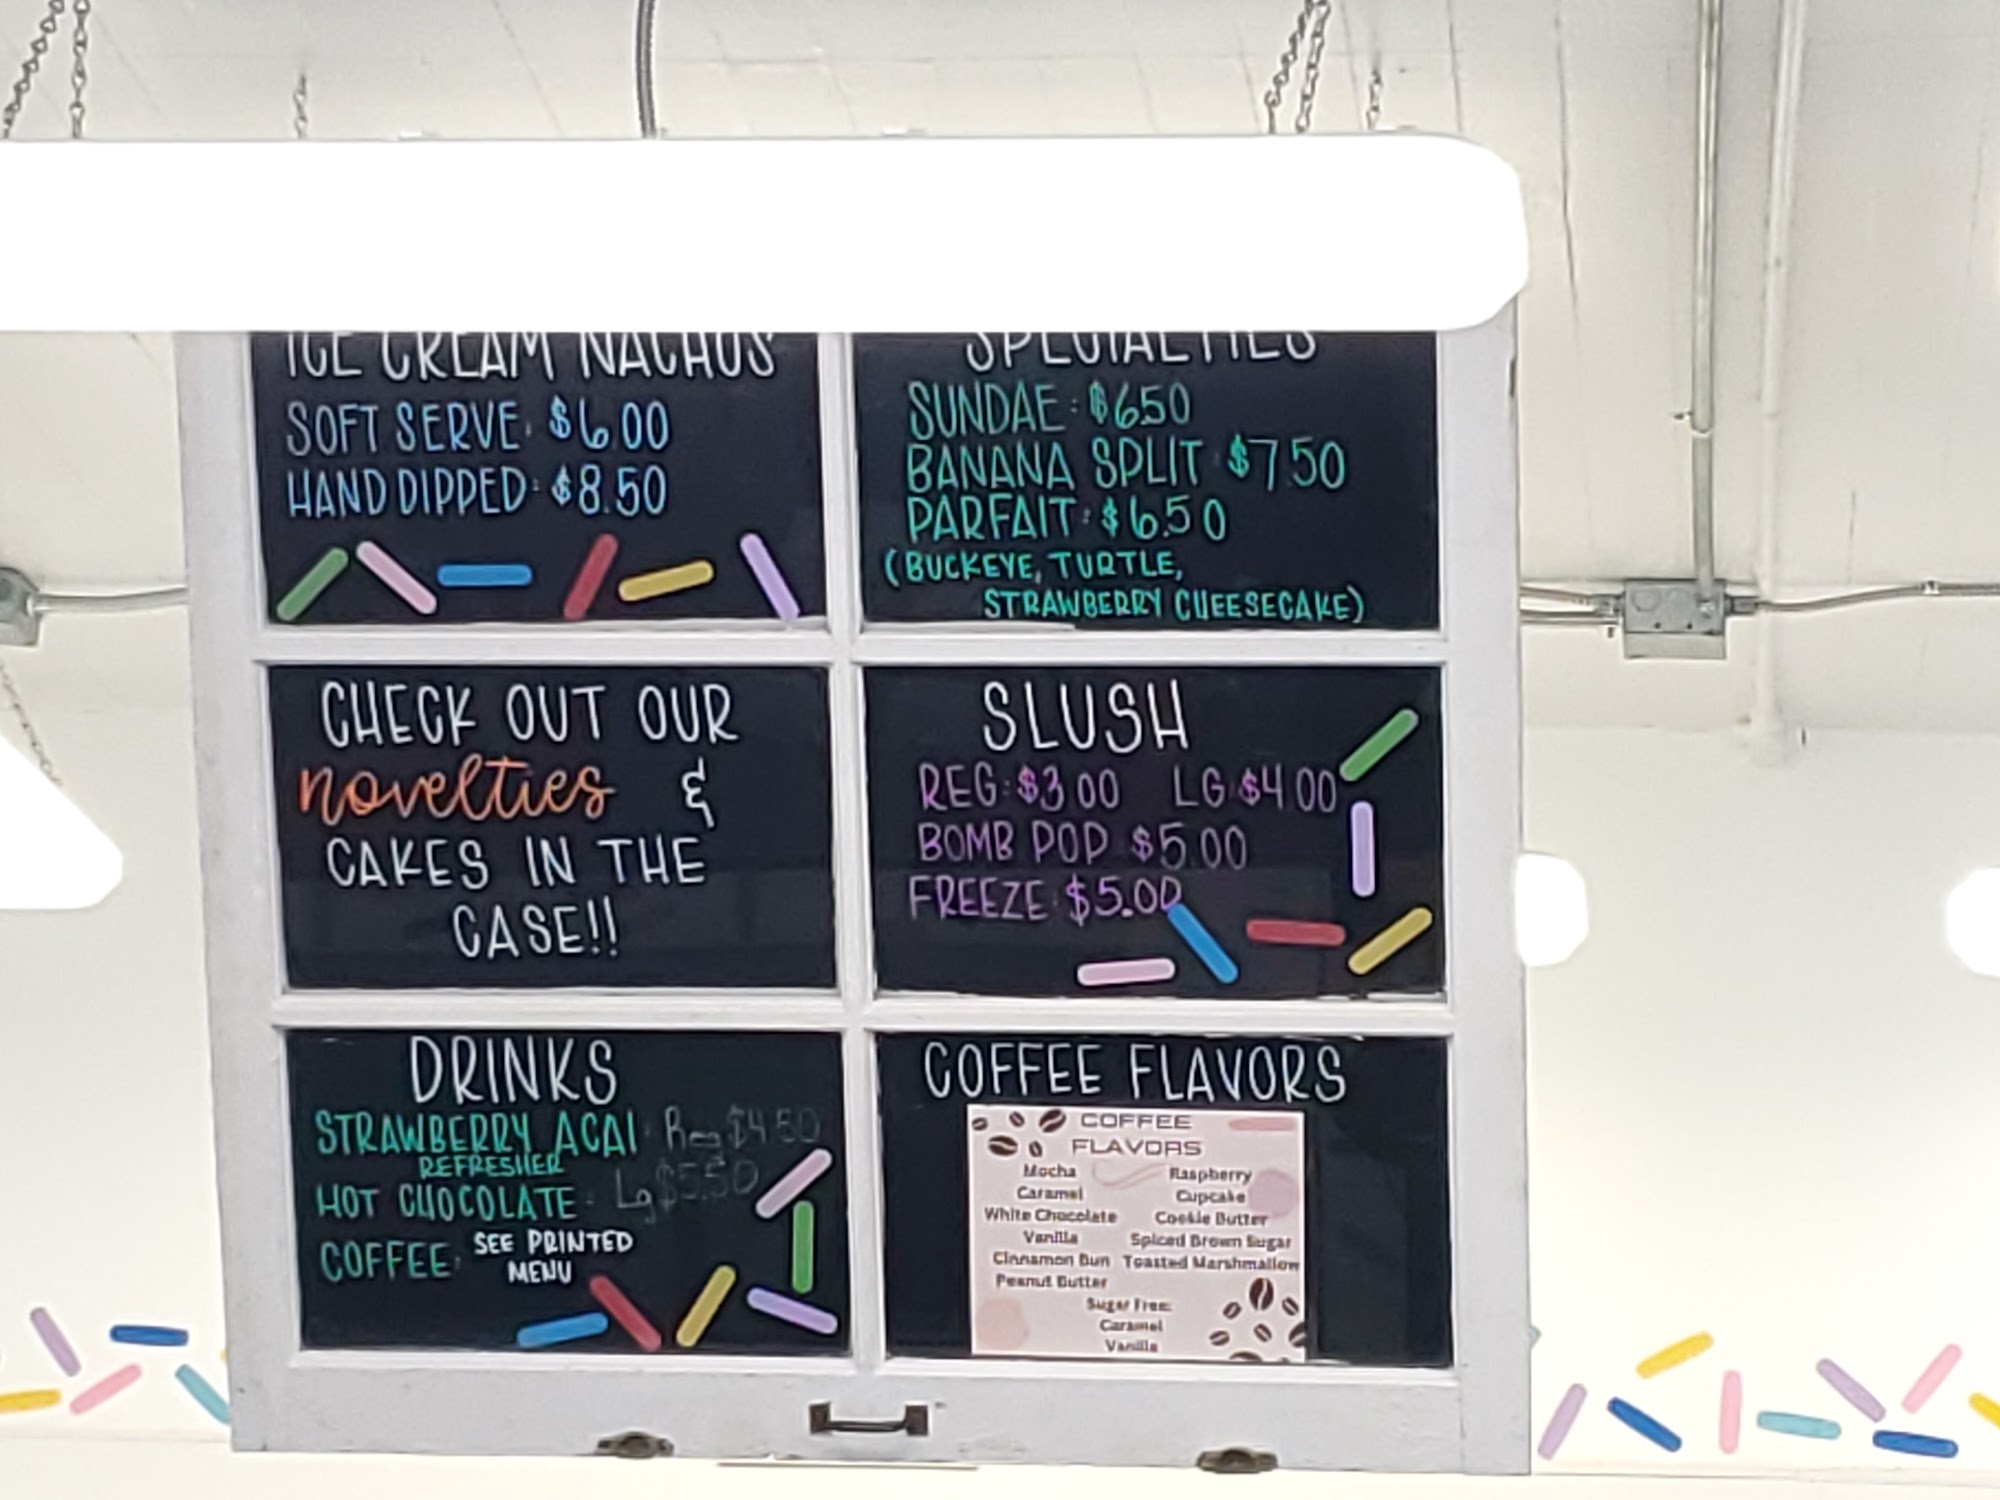 ICE CREAM NACHOS
SOFT SERVE: $6.00
HAND DIPPED: $8.50
SPECIALTIES
SUNDAE: $6.50
BANANA SPLIT $7.50
PARFAIT: $6.50
(BUCKEYE, TURTLE,
STRAWBERRY CHEESECAKE)
CHECK OUT OUR
novelties &
CAKES IN THE
CASE!!
SLUSH
REG: $3.00 LG $4.00
BOMB POP $5.00
FREEZE: $5.00
DRINKS
STRAWBERRY ACAI: Reg $4.50
REFRESHER
HOT CHOCOLATE: Lg $5.50
COFFEE: SEE PRINTED
MENU
COFFEE FLAVORS
COFFEE
FLAVORS
Mocha
Caramel
White Chocolate
Vanilla
Cinnamon Bun
Peanut Butter
Raspberry
Cupcake
Cookie Butter
Spiced Brown Sugar
Toasted Marshmallow
Sugar Free:
Caramel
Vanilla